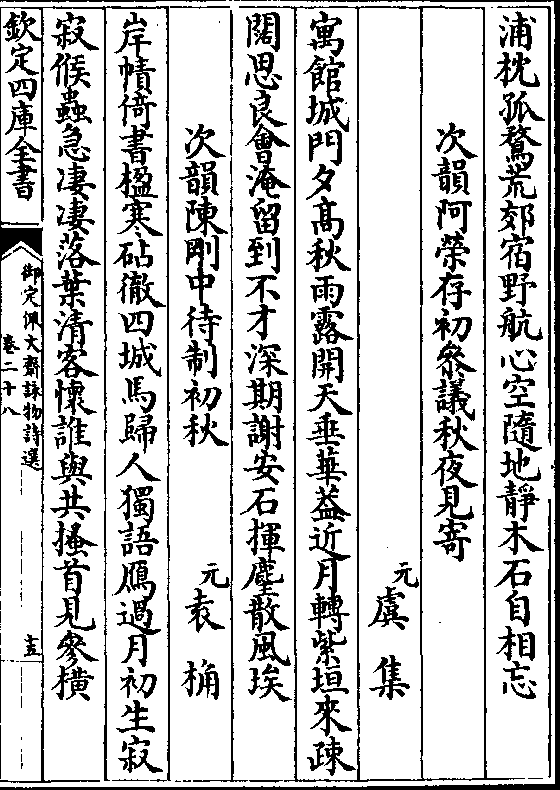 浦枕孤鶩荒郊宿野航心空隨地靜木石自相忘
次韻阿榮存初參議秋夜見寄
元虞集
寓館城門夕髙秋雨露開天垂華葢近月轉紫垣來疎
闊思良㑹淹留到不才深期謝安石揮麈散風埃
次韻陳剛中待制初秋
元袁桷
岸幘倚書楹寒砧徹四城馬歸人獨語鴈過月初生寂
寂候蟲急淒淒落葉清客懷誰與共搔首見參橫
欽定四庫全書
御定佩文齋詠物詩選
卷二十八
十五